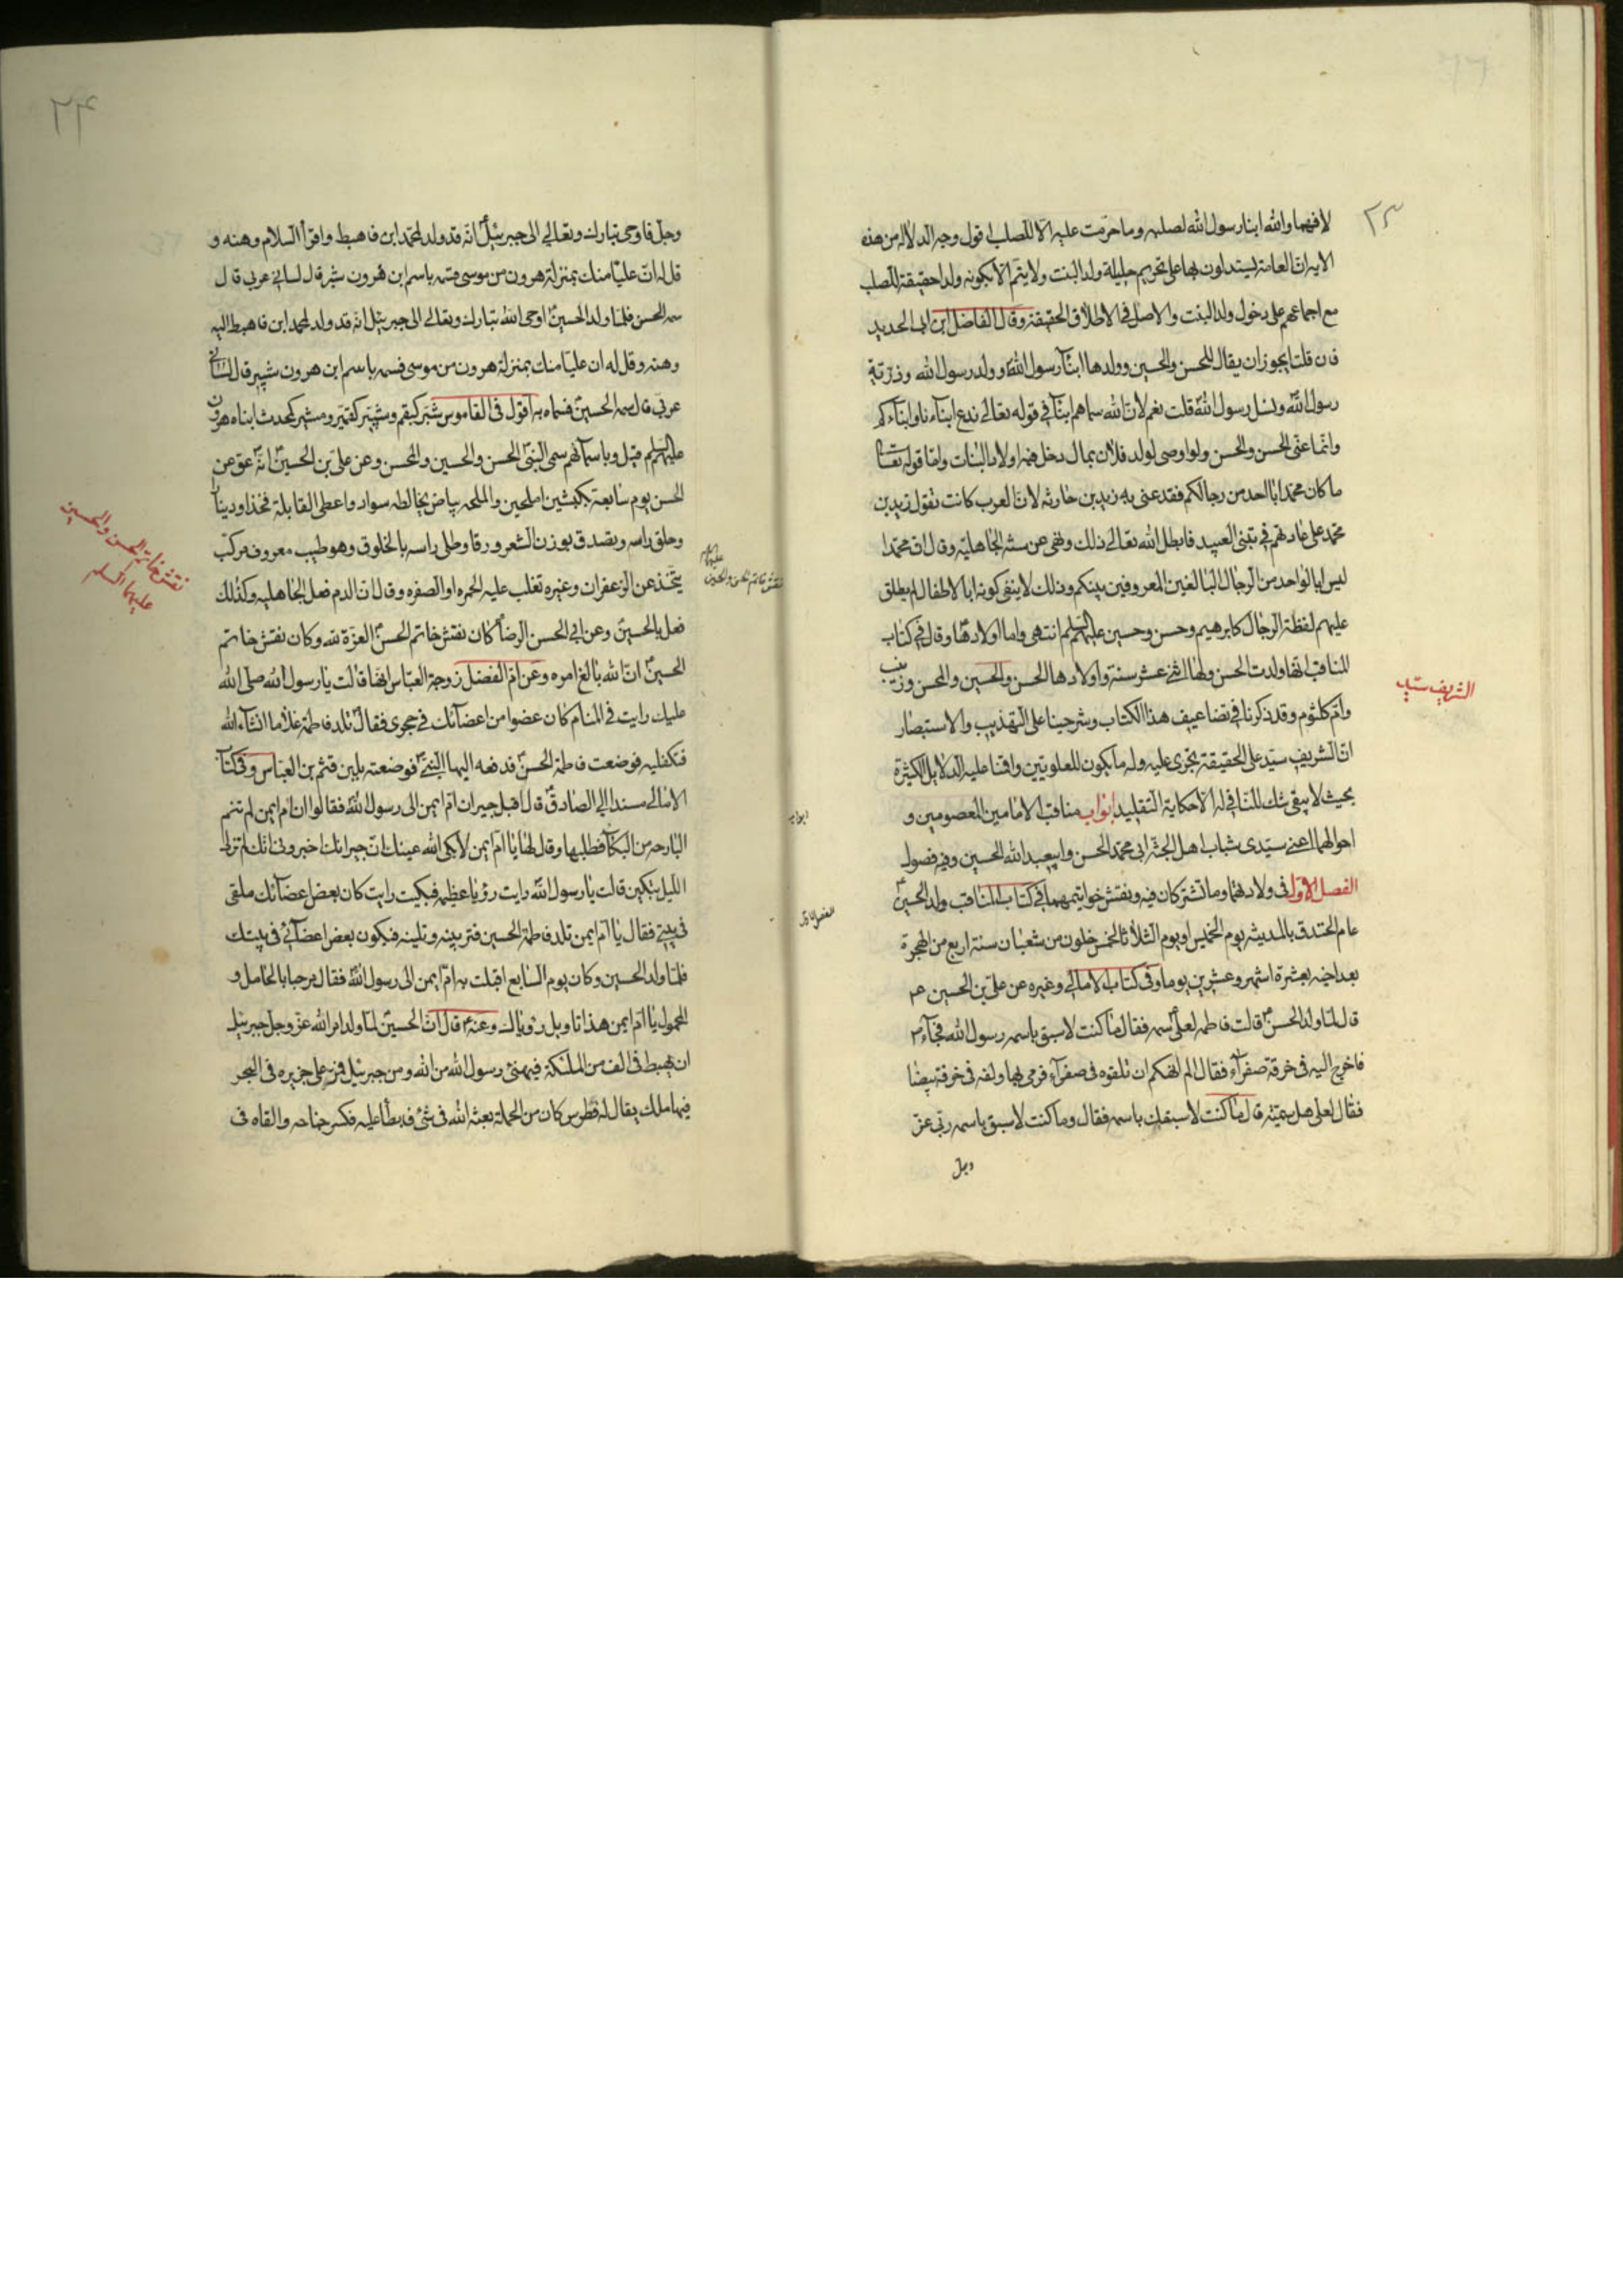 ٢٣
لا فهما والله ابنا رسول الله لصلبه وما حرمت عليه الا للصلب اقول وجه الدلالة من هذه
الاية ان العامة يستدلون بها على تحريم حليلة ولد البنت ولا يتم الا بكونه ولدا حقيقة للصلب
مع اجماعهم على دخول ولد البنت والاصل في الاطلاق الحقيقة وقال الفاضل ابن ابي الحديد
فان قلت ايجوز ان يقال للحسن والحسين وولدها ابنآء رسول الله وولد رسول الله وذرية
رسول الله ونسل رسول الله قلت نعم لان الله سماهم ابنآء في قوله تعالى ندع ابنآءنا وابنآءكم
وانما عنى الحسن والحسن ولو اوصى لولد فلان بمال دخل فيه اولاد البنات واما قوله تعالى
ما كان محمد ابا احد من رجالكم فقد عنى به زيد بن حارثه لان العرب كانت تقول زيد بن
محمد على عادتهم في تبنى العبيد فابطل الله تعالى ذلك ونهى عن سنة الجاهلية وقال ان محمدا
ليس ابا لواحد من الرجال البالغين المعروفين بينكم وذلك لا ينفى كونه ابا لاطفال لم يطلق
عليهم لفظة الرجال كابرهيم وحسن وحسين عليهم السلم انتهى واما اولادها وقال في كتاب
المناقب انها ولدت الحسن ولها اثنى عشر سنة واولادها الحسن والحسين والمحسن وزينب
وام كلثوم وقد ذكرنا في تضاعيف هذا الكتاب وشرحينا على التهذيب والاستبصار
ان الشريف سيد على الحقيقة يجرى عليه وله ما يكون للعلويين واقمنا عليه الدلايل الكثيرة
بحيث لا يبقى شك للناقى له الا حكاية التقليد ابواب مناقب الامامين المعصومين و
احوالهما اعنى سيدى شباب اهل الجنة ابى محمد الحسن وابيعبد الله الحسين وفيه فصول
الفصل الاول فى ولادتهما وما تشتركان فيه ونقش خواتيمهما في كتاب المناقب ولد الحسين
عام الخندق بالمدينه يوم الخميس او يوم الثلاثا لخمس خلون من شعبان سنة اربع من الهجرة
بعد اخيه بعشرة اشهر وعشرين يوما وفى كتاب الامالي وغيره عن على بن الحسين ع
قال لما ولد الحسن قالت فاطمه لعلى سمه فقال ما كنت لاسبق باسمه رسول الله فجآء
فاخرج اليه فى خرقة صفرآء فقال الم انهكم ان تلفوه فى صفرآء فرمى بها ولفه فى خرقة بيضا
فقال لعلى هل سميته قال ما كنت لاسبقك باسمه فقال وما كنت لاسبق باسمه ربى عز
وجل
الشريف سيد
ابواب
الفصل الاول
٢٤
وجل فاوحى تبارك وتعالى الى جبرئيل انه قد ولد لمحمد ابن فاهبط واقرأ السلام وهنه و
قل له ان عليا منك بمنزلة هرون من موسى فسمه باسم ابن هرون شبر قال لسانى عربى قال
سمه الحسن فلما ولد الحسين اوحى الله تبارك وتعالى الى جبرئيل انه قد ولد لمحمد ابن فاهبط اليه
وهنه وقل له ان عليا منك بمنزلة هرون من موسى فسمه باسم ابن هرون شبير قال لسانى
عربى قال سمه الحسين فسماه به اقول فى القاموس شبر كبقم وشبير كقمير ومشبر كمحدث ابناء هرون
عليهم السلم قيل وباسمآئهم سمى النبى الحسن والحسين والمحسن وعن على بن الحسين انه عق عن
الحسن يوم سابعة بكبشين املحين والملحه بياض يخالطه سواد واعطى القابلة فخذا ودينارا
وحلق راسه وتصدق بوزن الشعر ورقا وطلى راسه بالخلوق وهو طيب معروف مركب
يتخذ عن الزعفران وغيره تغلب عليه الحمره او الصفره وقال ان الدم فعل الجاهليه وكذلك
فعل بالحسين وعن ابى الحسن الرضا كان نقش خاتم الحسن العزة لله وكان نقش خاتم
الحسين ان الله بالغ امره وعن ام الفضل زوجة العباس انها قالت يا رسول الله صلى الله
عليك رايت فى المنام كان عضوا من اعضآئك فى حجرى فقال تلد فاطمة غلاما انشآء الله
فتكفليه فوضعت فاطمة الحسن فدفعه اليها النبى فوضعته بلبن قثم بن العباس وفى كتاب
الامالى مسندا الى الصادق قال اقبل جيران ام ايمن الى رسول الله فقالوا ان ام ايمن لم تنم
البارحه من البكآء فطلبها وقال لها يا ام ايمن لا بكى الله عينك ان جيرانك اخبرونى انك لم تزل
الليل تبكين قالت يا رسول الله رايت رؤيا عظيمه فبكيت رايت كان بعض اعضآئك ملقى
فى بيتى فقال يا ام ايمن تلد فاطمة الحسين فتربينه وتلينه فيكون بعض اعضآئى فى بيتك
فلما ولد الحسين وكان يوم السابع اقبلت به ام ايمن الى رسول الله فقال مرحبا بالحامل و
المحمول يا ام ايمن هذا تاويل رؤياك وعنه قال ان الحسين لما ولد امر الله عز وجل جبرئيل
ان يهبط فى الف من الملئكة فيهنئ رسول الله من الله ومن جبرئيل فمر على جزيره فى البحر
فيها ملك يقال له فطرس كان من الحملة بعثه الله فى شئ فابطأ عليه فكسر جناحه والقاه فى
عليهما السلام
نقش خاتم الحسن والحسين
نقش خاتم الحسن والحسين
عليهما السلم